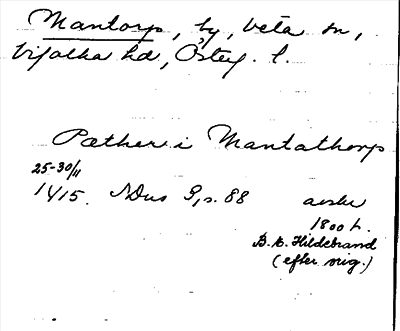 Mantorp, by, Veta sn,
Vifolka hd, Österg. l.
Pæther i Mantathorp
25-30/11
1415. NDus 9, s. 88 avskr
1800 t.
B. E. Hildebrand
(efter orig.)